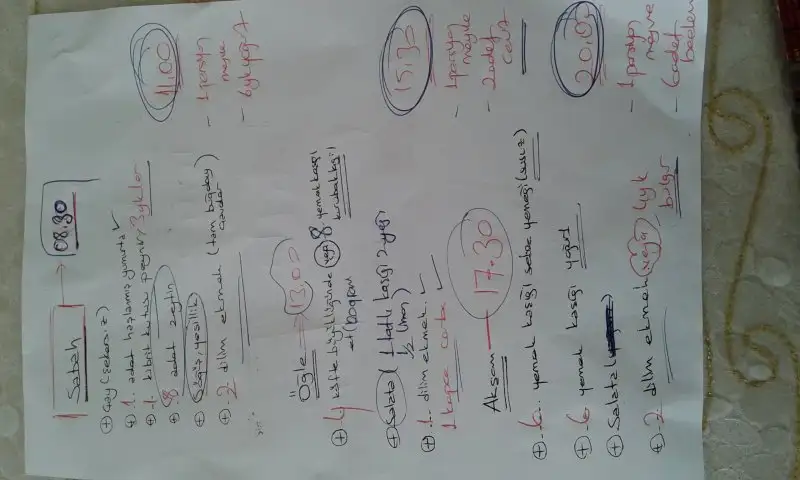 Sabah → 08.30
⊕ Çay (şekersiz)
⊕ 1 adet haşlanmış yumurta ✓
⊕ -1 kibrit kutusu peynir
⊕ 8 adet zeytin
⊕ Söğüş, yeşillik
⊕ -2 dilim ekmek (tam buğday
11.00
- 1 porsiyon
meyve
- 6
Öğle → 13.00
⊕ - 4 köfte büyüklüğünde veya 8 yemek kaşığı
et
⊕ Salata ( 1 tatlı kaşığı z.yağı
1/2 limon)
⊕ 1 dilim ekmek ✓
1
15.30
- 1 porsiyon
meyve
- 2 adet
ceviz
Akşam — 17.30
⊕ - 6 yemek kaşığı sebze yemeği (susuz)
⊕ - 6 yemek kaşığı yoğurt
⊕ Salata
⊕ - 2 dilim ekmek veya 4 yk
bulgur
- 1 porsiyon
meyve
- 6 adet
badem